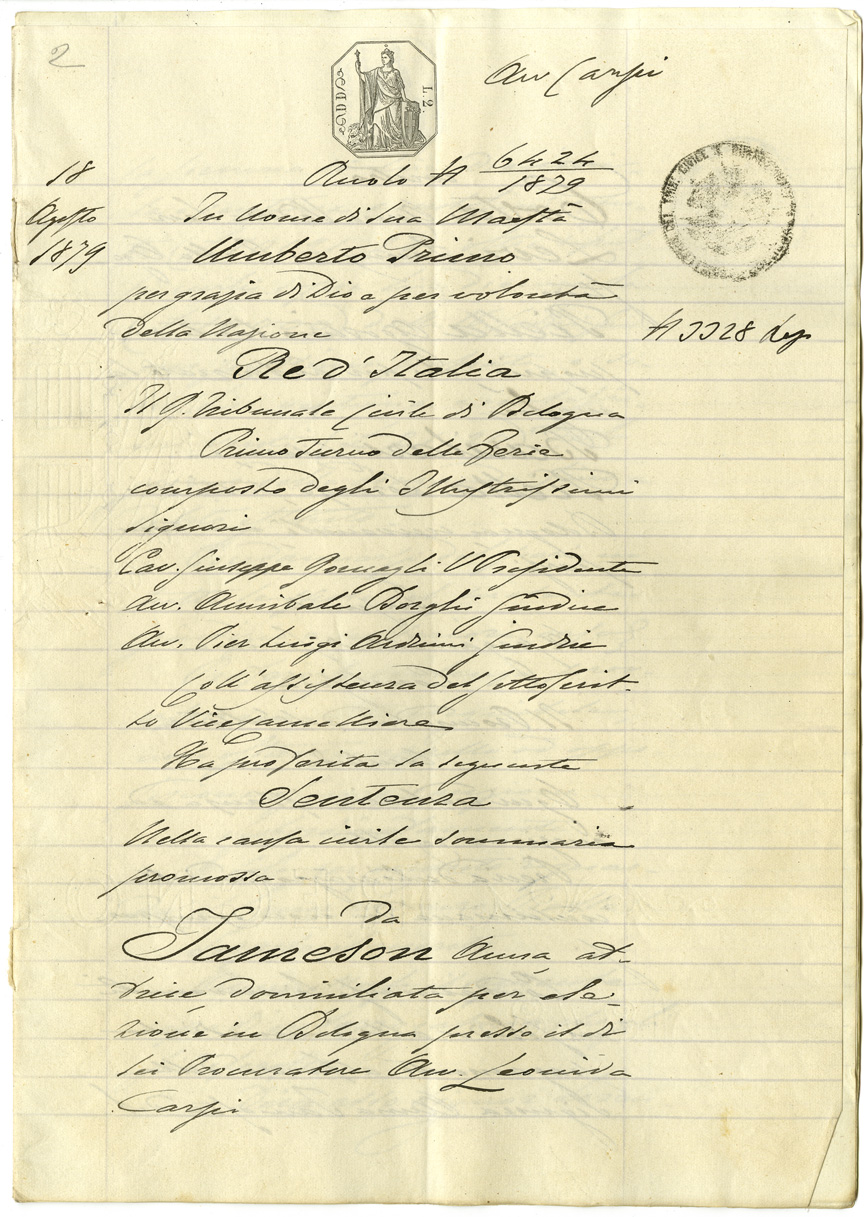 2
Avv Carpi
L. 2.
18
Agosto
1879
Ruolo N 6424
1879
In Nome di Sua Maestà
Umberto Primo
per grazia di Dio e per volontà
della Nazione
N 3328 Rep
Re d'Italia
Il R. Tribunale Civile di Bologna
Primo Turno delle ferie
composto degli Illustrissimi
Signori
Cav. Giuseppe V Presidente
Avv. Annibale Borghi Giudice
Avv. Pier Luigi Giudice
Coll'assistenza del sottoscrit-
to Vicecancelliere
Ha proferita la seguente
Sentenza
Nella causa civile sommaria
promossa
da
Jameson Anna at-
trice domiciliata per ele-
zione in Bologna presso il di
lei Procuratore Avv. Leonida
Carpi